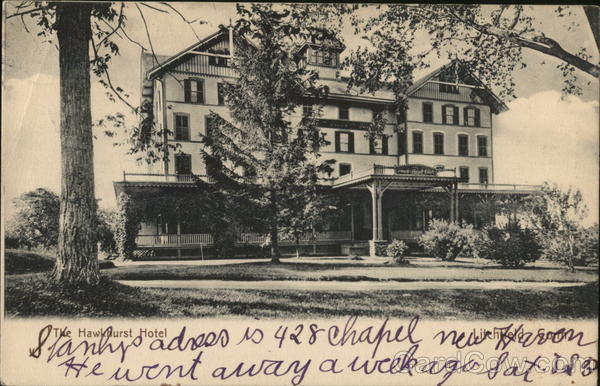 The Hawkhurst Hotel
Litchfield, Conn.
Stanly's adress is 428 chapel new Haven
He went away a week ago Sat